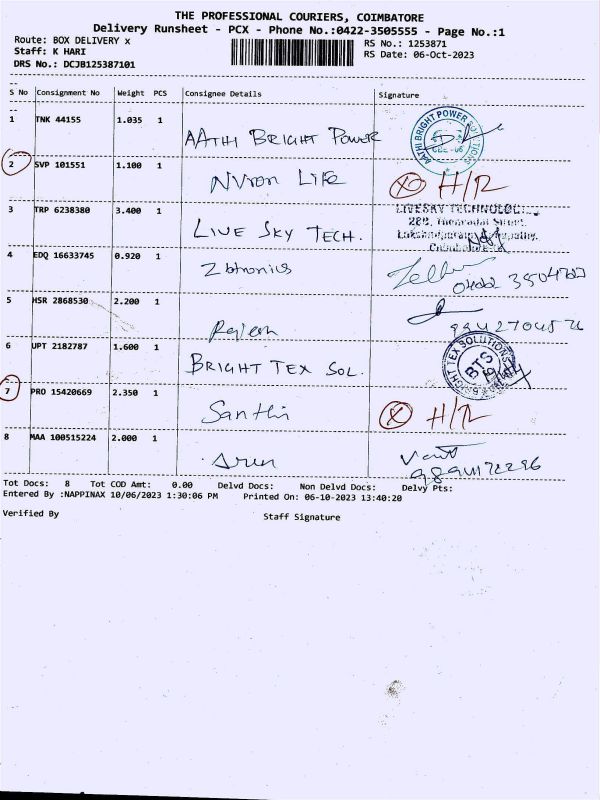 THE PROFESSIONAL COURIERS, COIMBATORE
Delivery Runsheet - PCX - Phone No.:0422-3505555 - Page No.:1
Route: BOX DELIVERY x RS No.: 1253871
Staff: K HARI RS Date: 06-Oct-2023
DRS No.: DCJB125387101
S No Consignment No Weight PCS Consignee Details Signature
1 TNK 44155 1.035 1 AATHI BRIGHT POWER AATHI BRIGHT POWER SOLUTIONS
2 SVP 101551 1.100 1 NVron LIFe X H/R
3 TRP 6238380 3.400 1 LIVE SKY TECH. LIVESKY TECHNOLOG
Coimbatore
4 EDQ 16633745 0.920 1 Zbtronics
5 HSR 2868530 2.200 1 Rajesh
6 UPT 2182787 1.600 1 BRIGHT TEX SOL. BRIGHT TEX SOLUTIONS BTS
7 PRO 15420669 2.350 1 Santhi X H/R
8 MAA 100515224 2.000 1 Arun
Tot Docs: 8 Tot COD Amt: 0.00 Delvd Docs: Non Delvd Docs: Delvy Pts:
Entered By :NAPPINAX 10/06/2023 1:30:06 PM Printed On: 06-10-2023 13:40:20
Verified By Staff Signature